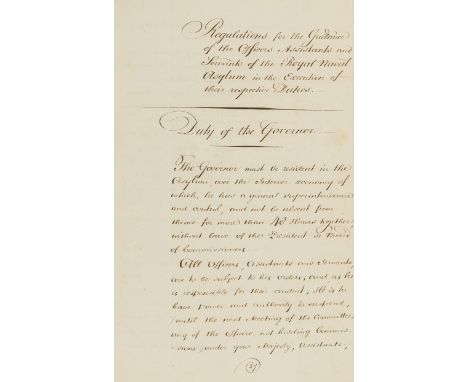 Regulations for the Guidance
of the Officers Assistants and
Servants of the Royal Naval
Asylum in the Execution of
their respective Duties.
Duty of the Governor
The Governor must be resident in the
Asylum over the Interior economy of
which, he has a general superintendance
and control, and not be absent from
thence for more than 48 Hours together,
without leave of the President or Board
of Commissioners
All Officers, Assistants and Servants,
are to be subject to his orders; and as he
is responsible for their conduct, He is to
have power and authority to suspend,
until the next Meeting of the Committee
any of the Officers, not holding Commis-
-sions under your Majesty, Assistants,